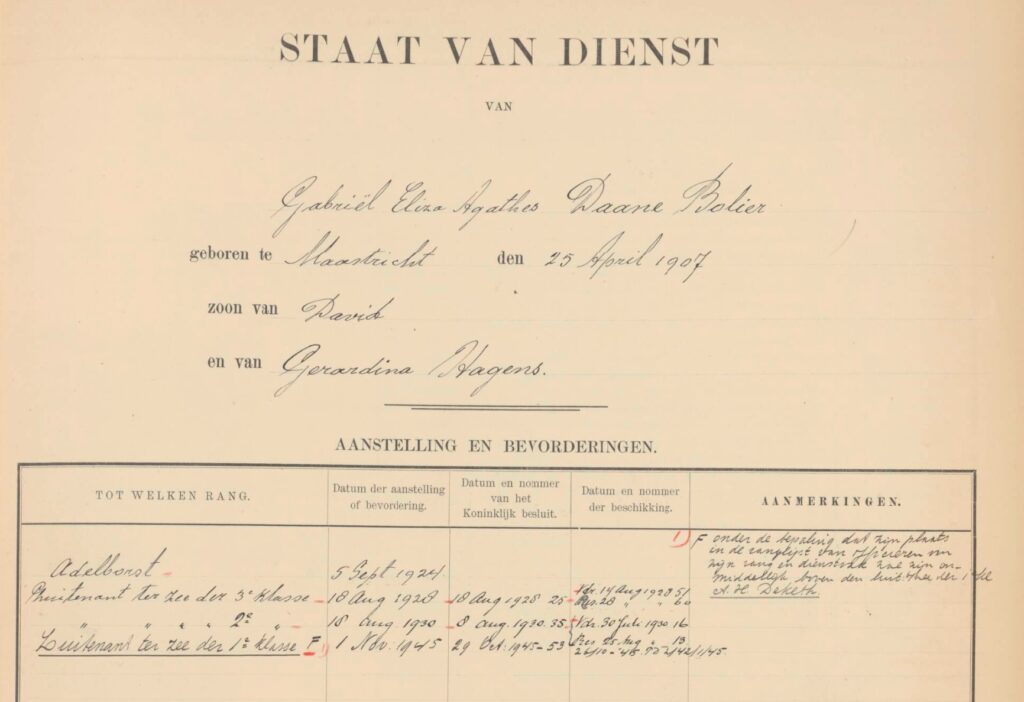 STAAT VAN DIENST
VAN
Gabriël Eliza Agathes Daane Bolier
geboren te Maastricht den 25 April 1907
zoon van David
en van Gerardina Hagens.
AANSTELLING EN BEVORDERINGEN.
TOT WELKEN RANG.
Datum der aanstelling
of bevordering.
Datum en nommer
van het
Koninklijk besluit.
Datum en nommer
der beschikking.
AANMERKINGEN.
1) F onder de bepaling dat zijn plaats
in de ranglijst van officieren van
zijn rang en dienstvak zal zijn on-
middellijk boven den luit. ter zee der 1e kl
A. H. Deketh
Adelborst 5 Sept 1924
Luitenant ter zee der 3e klasse 18 Aug 1928 18 Aug 1928 25 14 Aug 1928 51
Res. 28 " " 60
" " " " 2e " 18 aug 1930 8 aug. 1930. 35 30 Juli 1930 16
Res 25 Aug " 13
Luitenant ter zee der 1e klasse F 1) 1 Nov. 1945 29 Oct. 1945 - 53